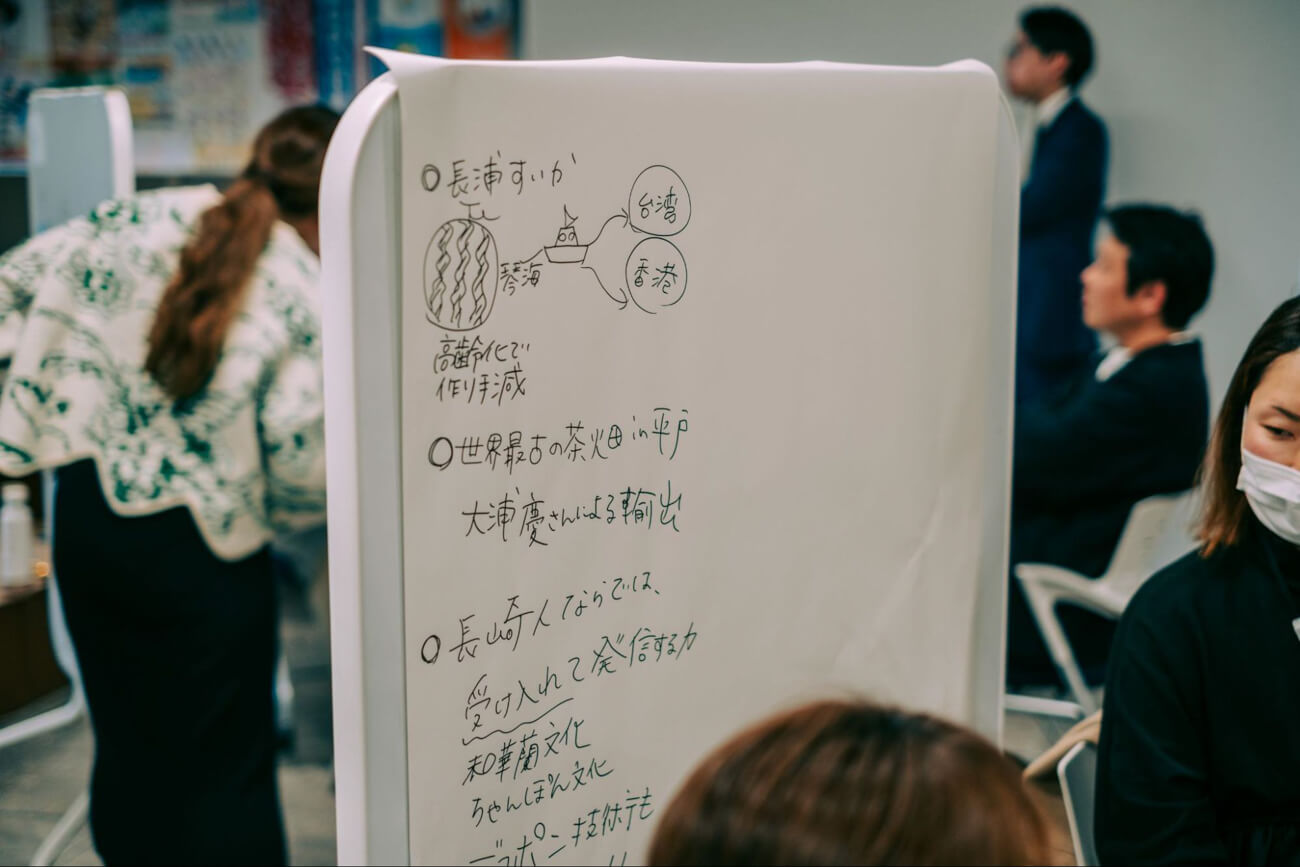 ○長浦すいか
台湾
琴海
香港
高齢化で
作り手減
○世界最古の茶畑 in 平戸
大浦慶さんによる輸出
○長崎人ならでは、
受け入れて発信する力
和華蘭文化
ちゃんぽん文化
技術